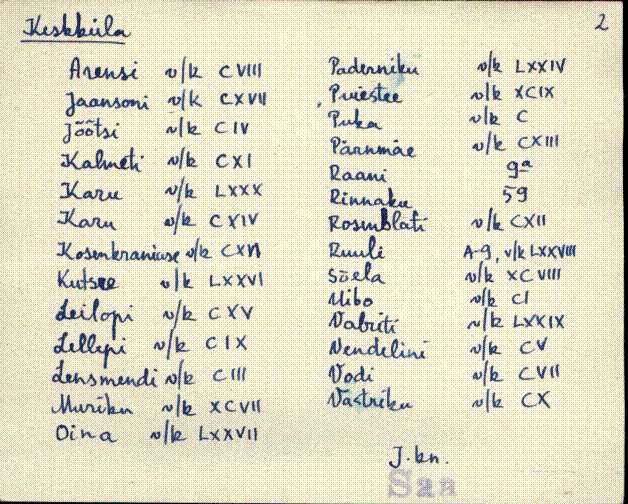 Keskküla
2
Arensi v/k CVIII
Jaansoni v/k CXVII
Jõõtsi v/k CIV
Kalmeti v/k CXI
Karu v/k LXXX
Karu v/k CXIV
Kosenkraniuse v/k CXVI
Kutsee v/k LXXVI
Leilopi v/k CXV
Lellepi v/k CIX
Lensmendi v/k CIII
Muriku v/k XCVII
Oina v/k LXXVII
Paderniku v/k LXXIV
Priestee v/k XCIX
Puka v/k C
Pärnmäe v/k CXIII
Raani 9a
Rinnaku 59
Rosenblati v/k CXII
Ruuli A-9, v/k LXXVIII
Sõela v/k XCVIII
Uibo v/k CI
Vabriti v/k LXXIX
Vendelini v/k CV
Vodi v/k CVII
Västriku v/k CX
J. kn.
Saa